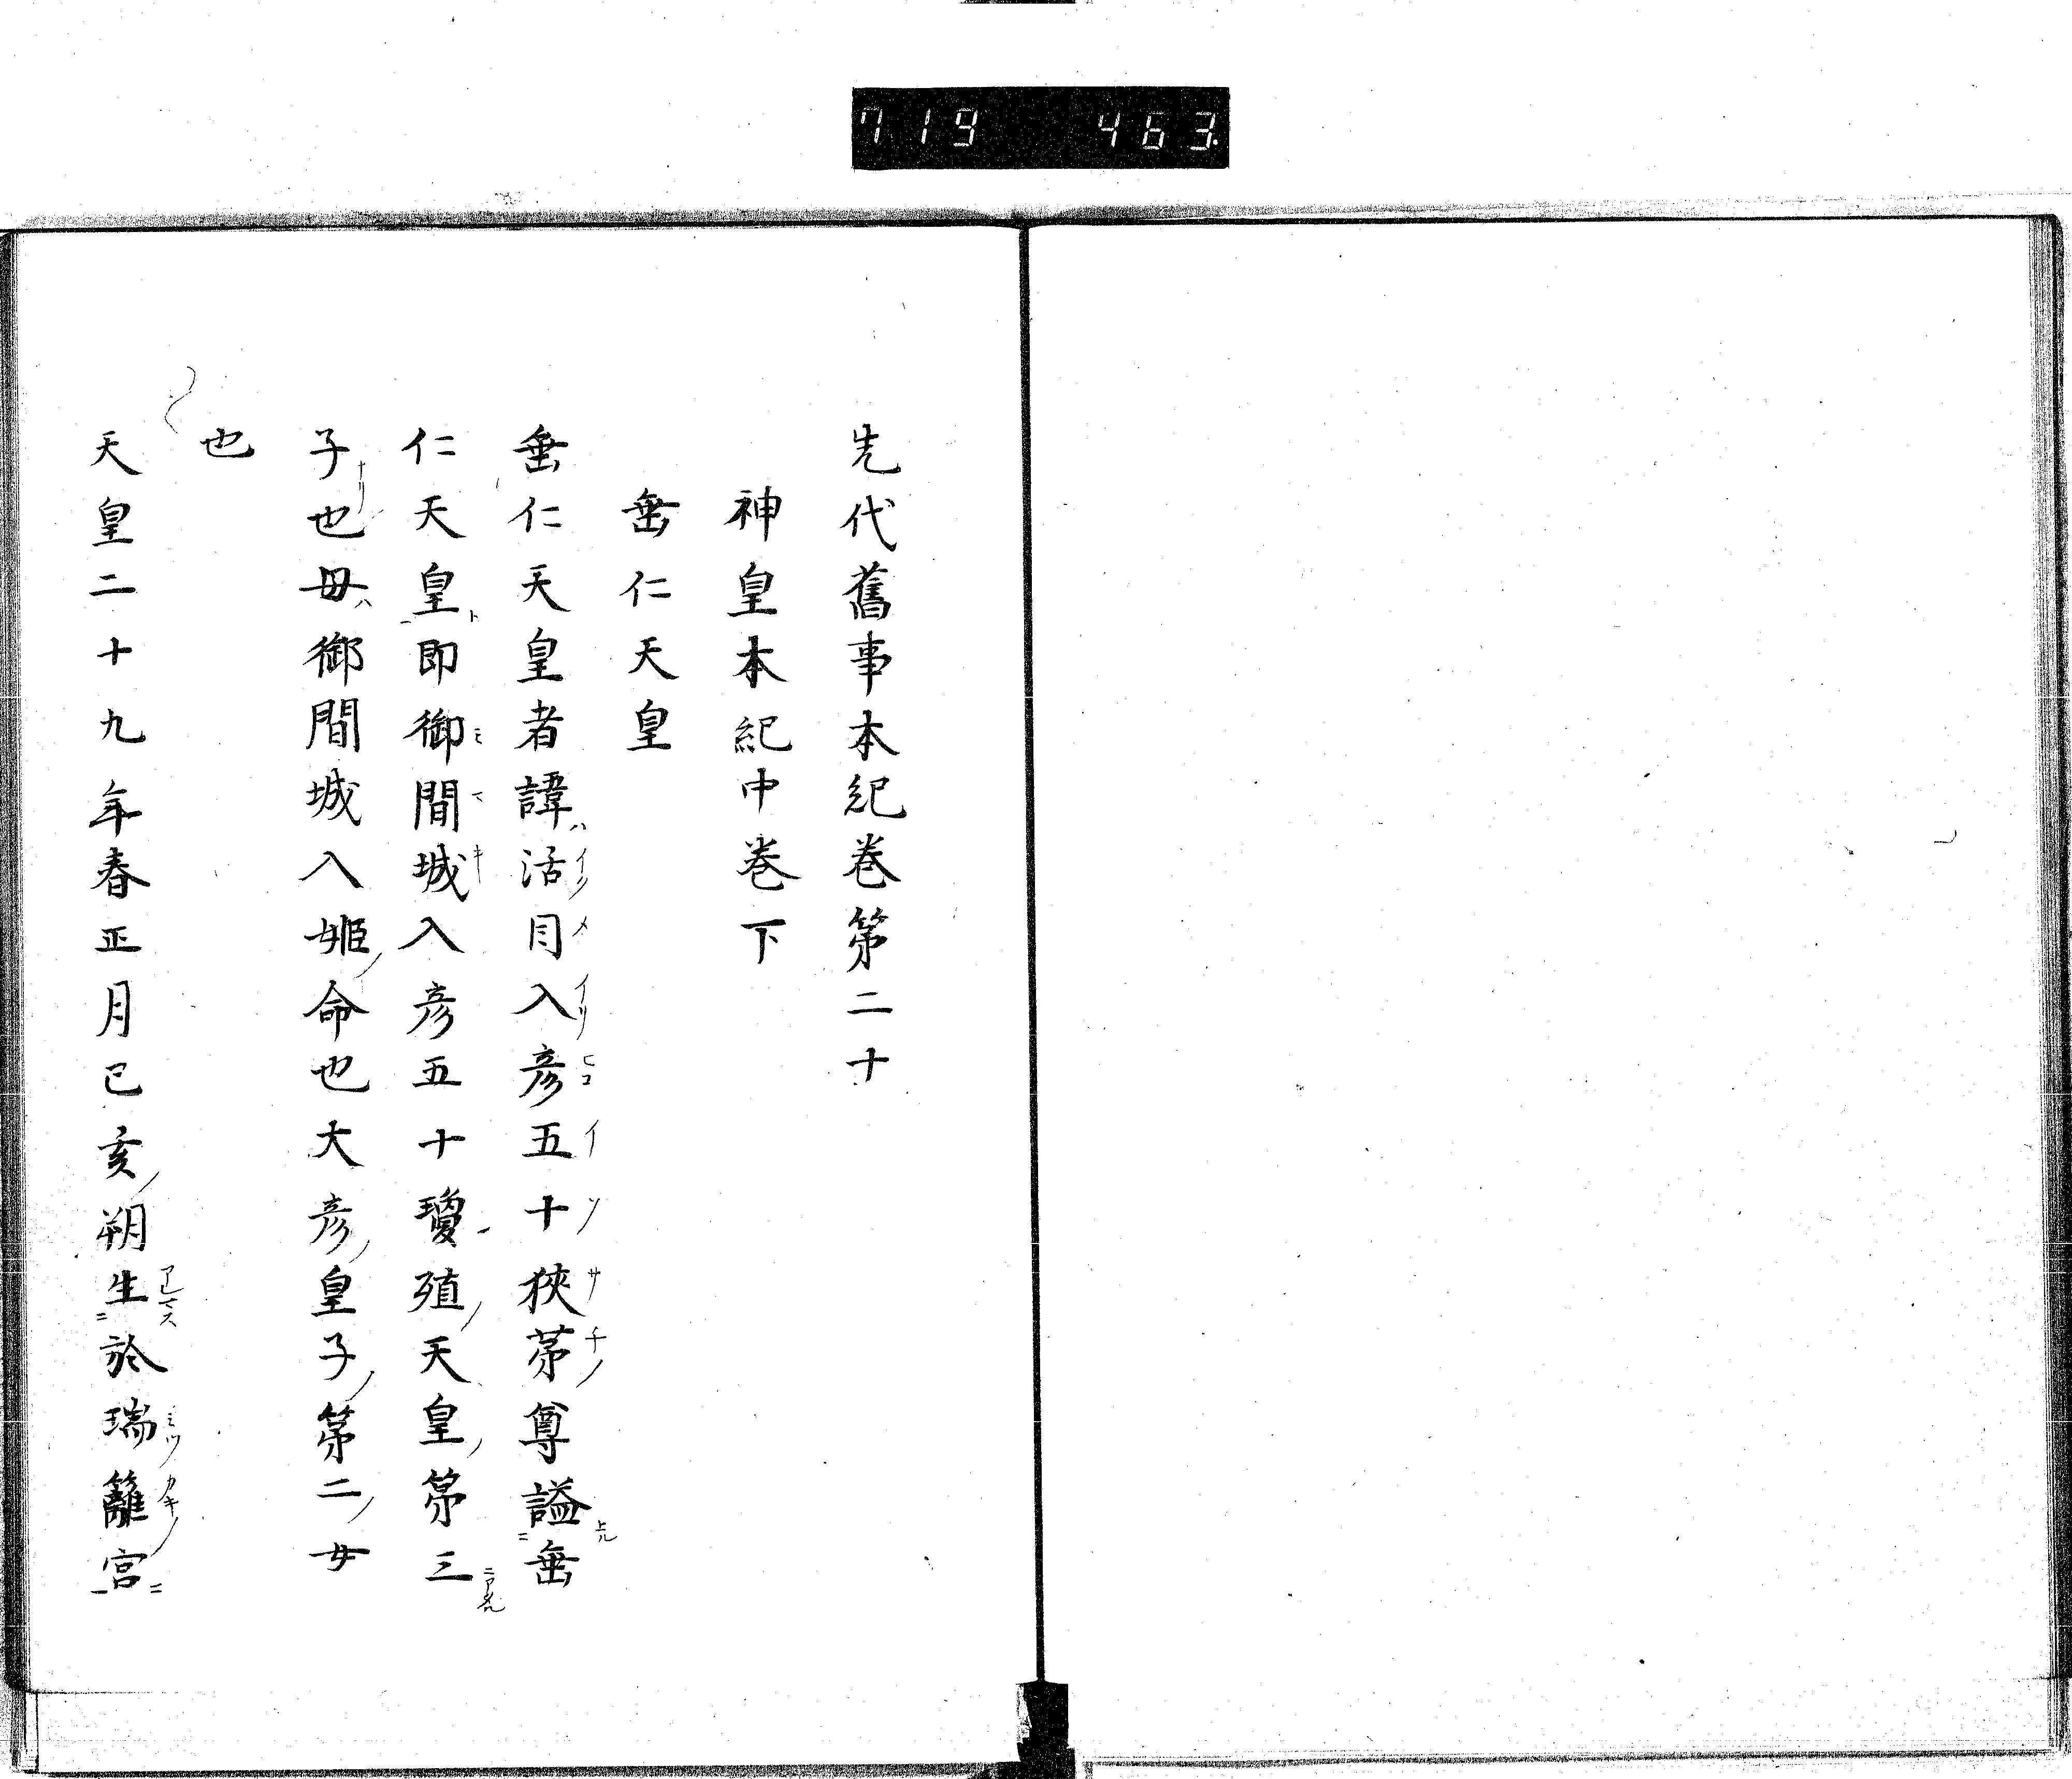 719 463
先代舊事本紀巻第二十
神皇本紀中巻下
垂仁天皇
垂仁天皇者諱活目入彦五十狹茅尊謚垂
仁天皇即御間城入彦五十瓊殖天皇第三
子也母御間城入姫命也大彦皇子第二女
也
天皇二十九年春正月己亥朔生於瑞籬宮